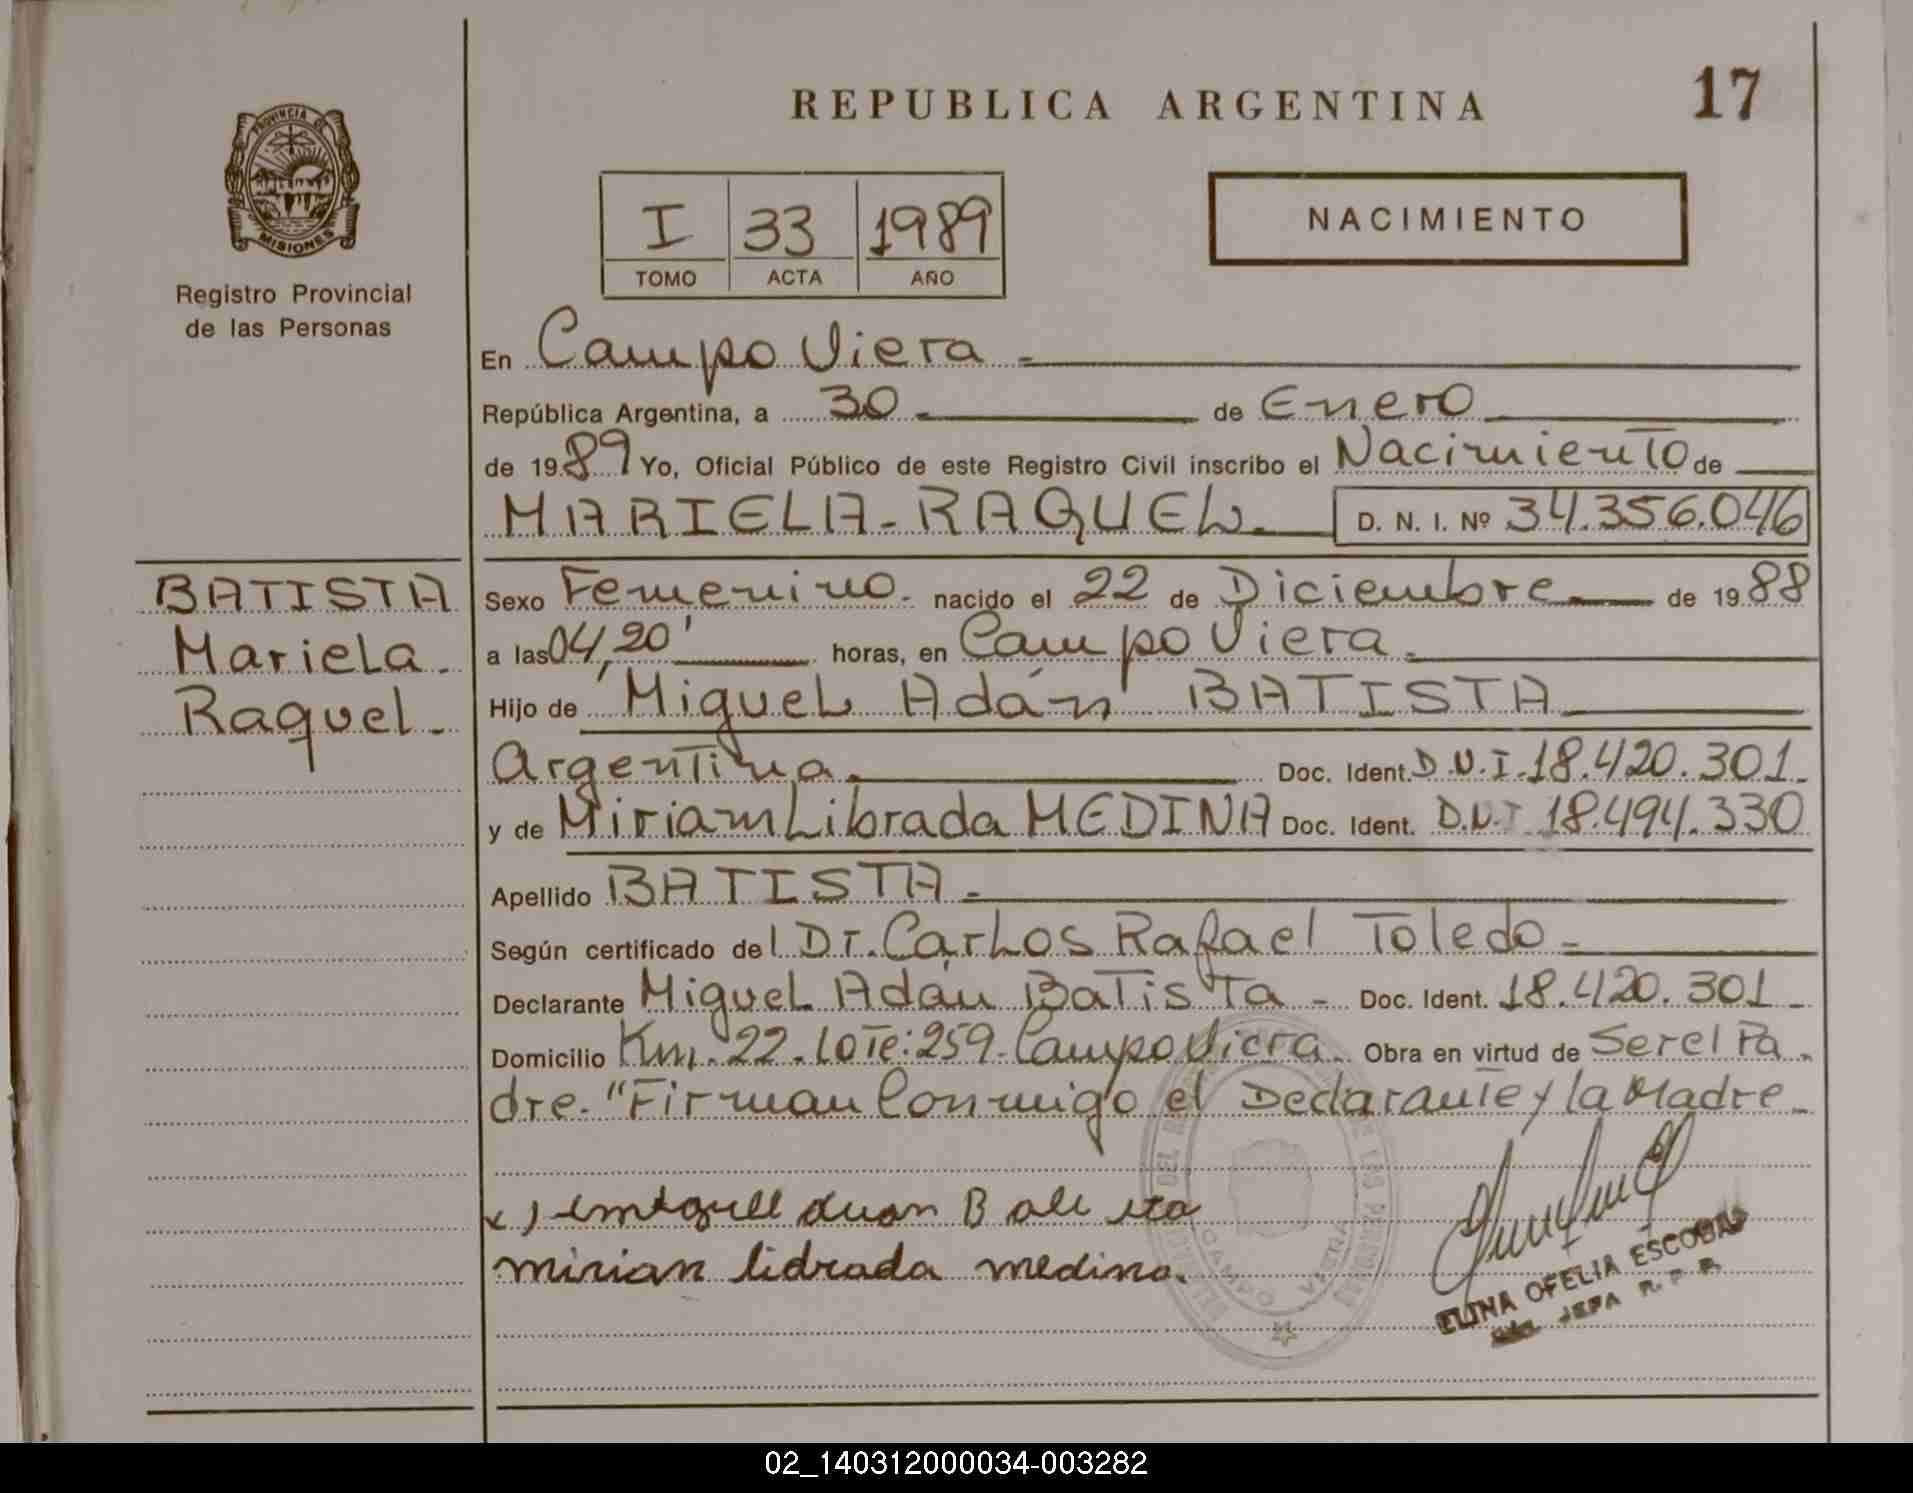 REPUBLICA ARGENTINA
17
PROVINCIA DE
MISIONES
Registro Provincial
de las Personas
I 33 1989
TOMO ACTA AÑO
NACIMIENTO
En Campo Viera -
República Argentina, a 30 - de Enero
de 1989 Yo, Oficial Público de este Registro Civil inscribo el Nacimiento de
MARIELA - RAQUEL - D. N. I. Nº 34.356.046
BATISTA
Mariela.
Raquel -
Sexo Femenino. nacido el 22 de Diciembre de 1988
a las 04,20' horas, en Campo Viera.
Hijo de Miguel Adán BATISTA
Argentina. Doc. Ident. D.N.I. 18.420.301 -
y de Miriam Librada MEDINA Doc. Ident. D.N.I 18.494.330
Apellido BATISTA -
Según certificado del Dr. Carlos Rafael Toledo -
Declarante Miguel Adán Batista - Doc. Ident. 18.420.301 -
Domicilio Km. 22 - Lote: 259 - Campo Viera. Obra en virtud de Ser el Pa
dre. "Firman Conmigo el Declarante y la Madre
mirian lidrada medina.
CAMPO VIERA
ELINA OFELIA ESCOBAR
JEFA R. P. P.
02_140312000034-003282